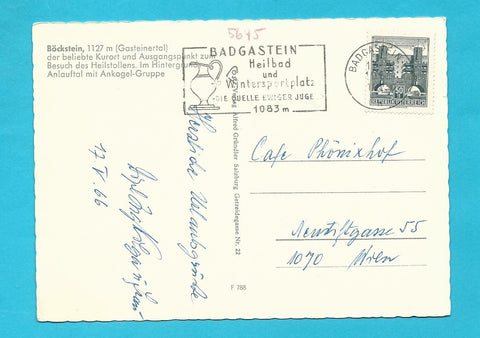 5645
Böckstein, 1127 m (Gasteinertal)
der beliebte Kurort und Ausgangspunkt zum
Besuch des Heilstollens. Im Hintergrund
Anlauftal mit Ankogel-Gruppe
BADGASTEIN
Heilbad
und
Wintersportplatz
DIE QUELLE EWIGER JUGEND
1083 m
BADGAST
REPUBLIK ÖSTERREICH
Alfred Gründler Salzburg Getreidegasse Nr. 22
Herzliche Urlaubsgrüße
17. V. 66
Cafe Phönixhof
Neustiftgasse 55
1070 Wien
F 788